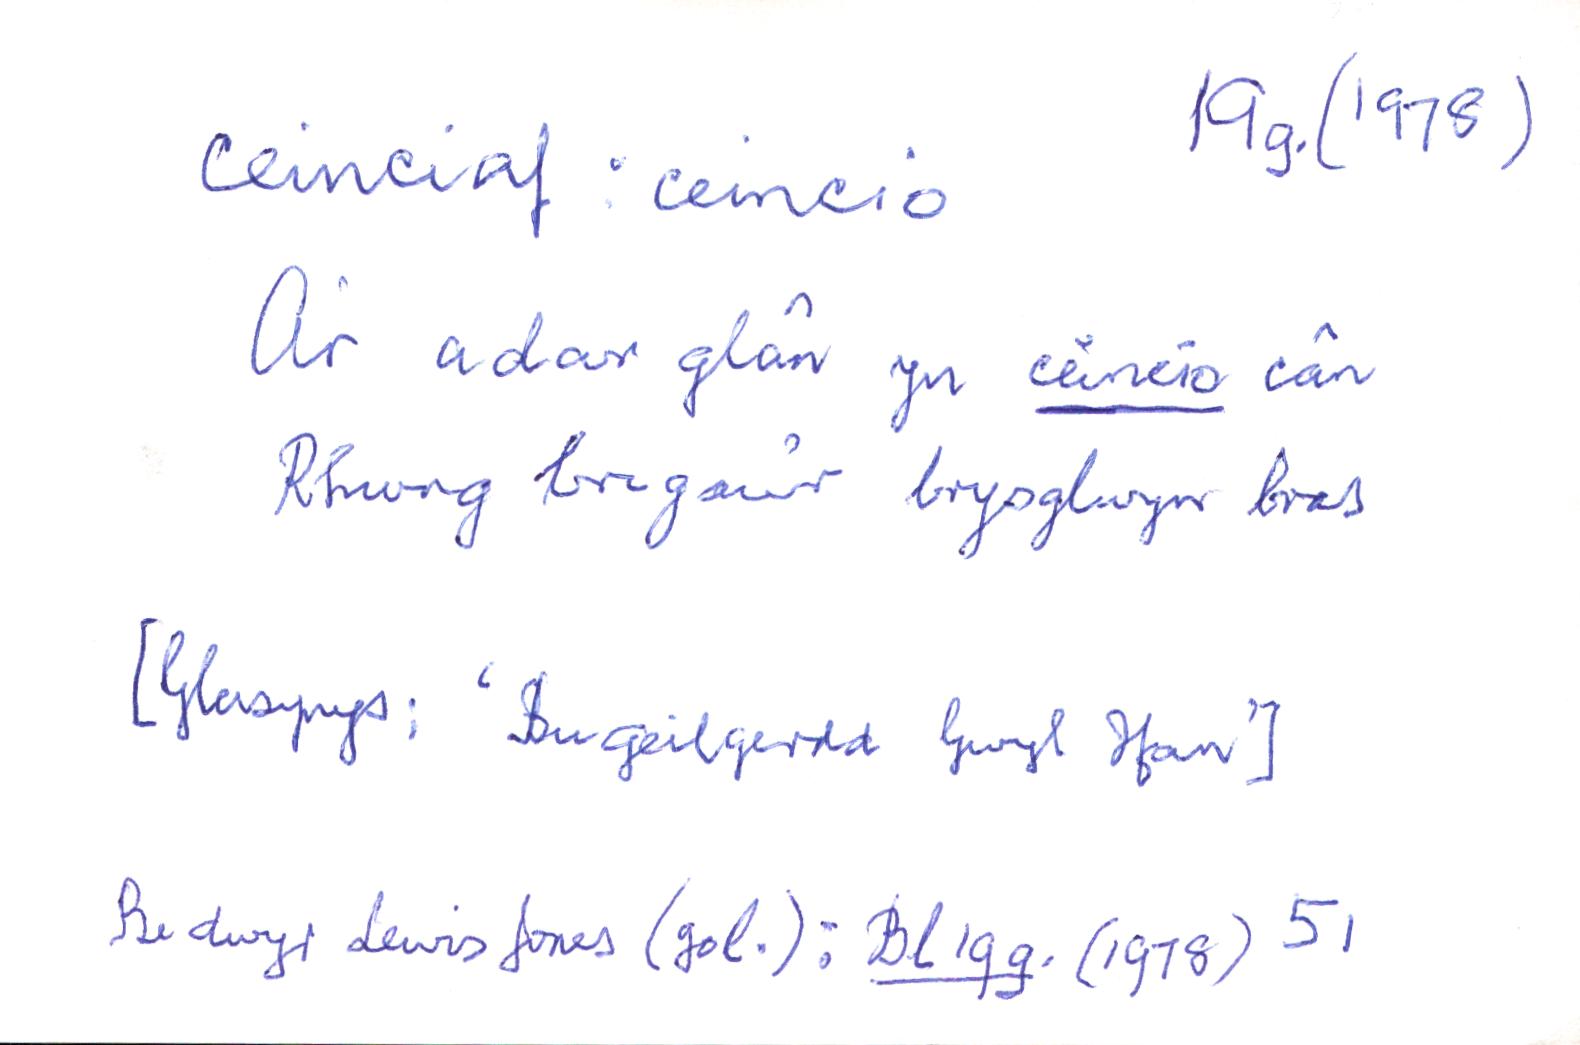 19g. (1978)
ceinciaf : ceincio
A'r adar glân yn ceincio cân
Rhwng brigau'r brysglwyn bras
[Glasynys; 'Bugeilgerdd Gwyl Ifan']
Bedwyr Lewis Jones (gol.): Bl 19g. (1978) 51